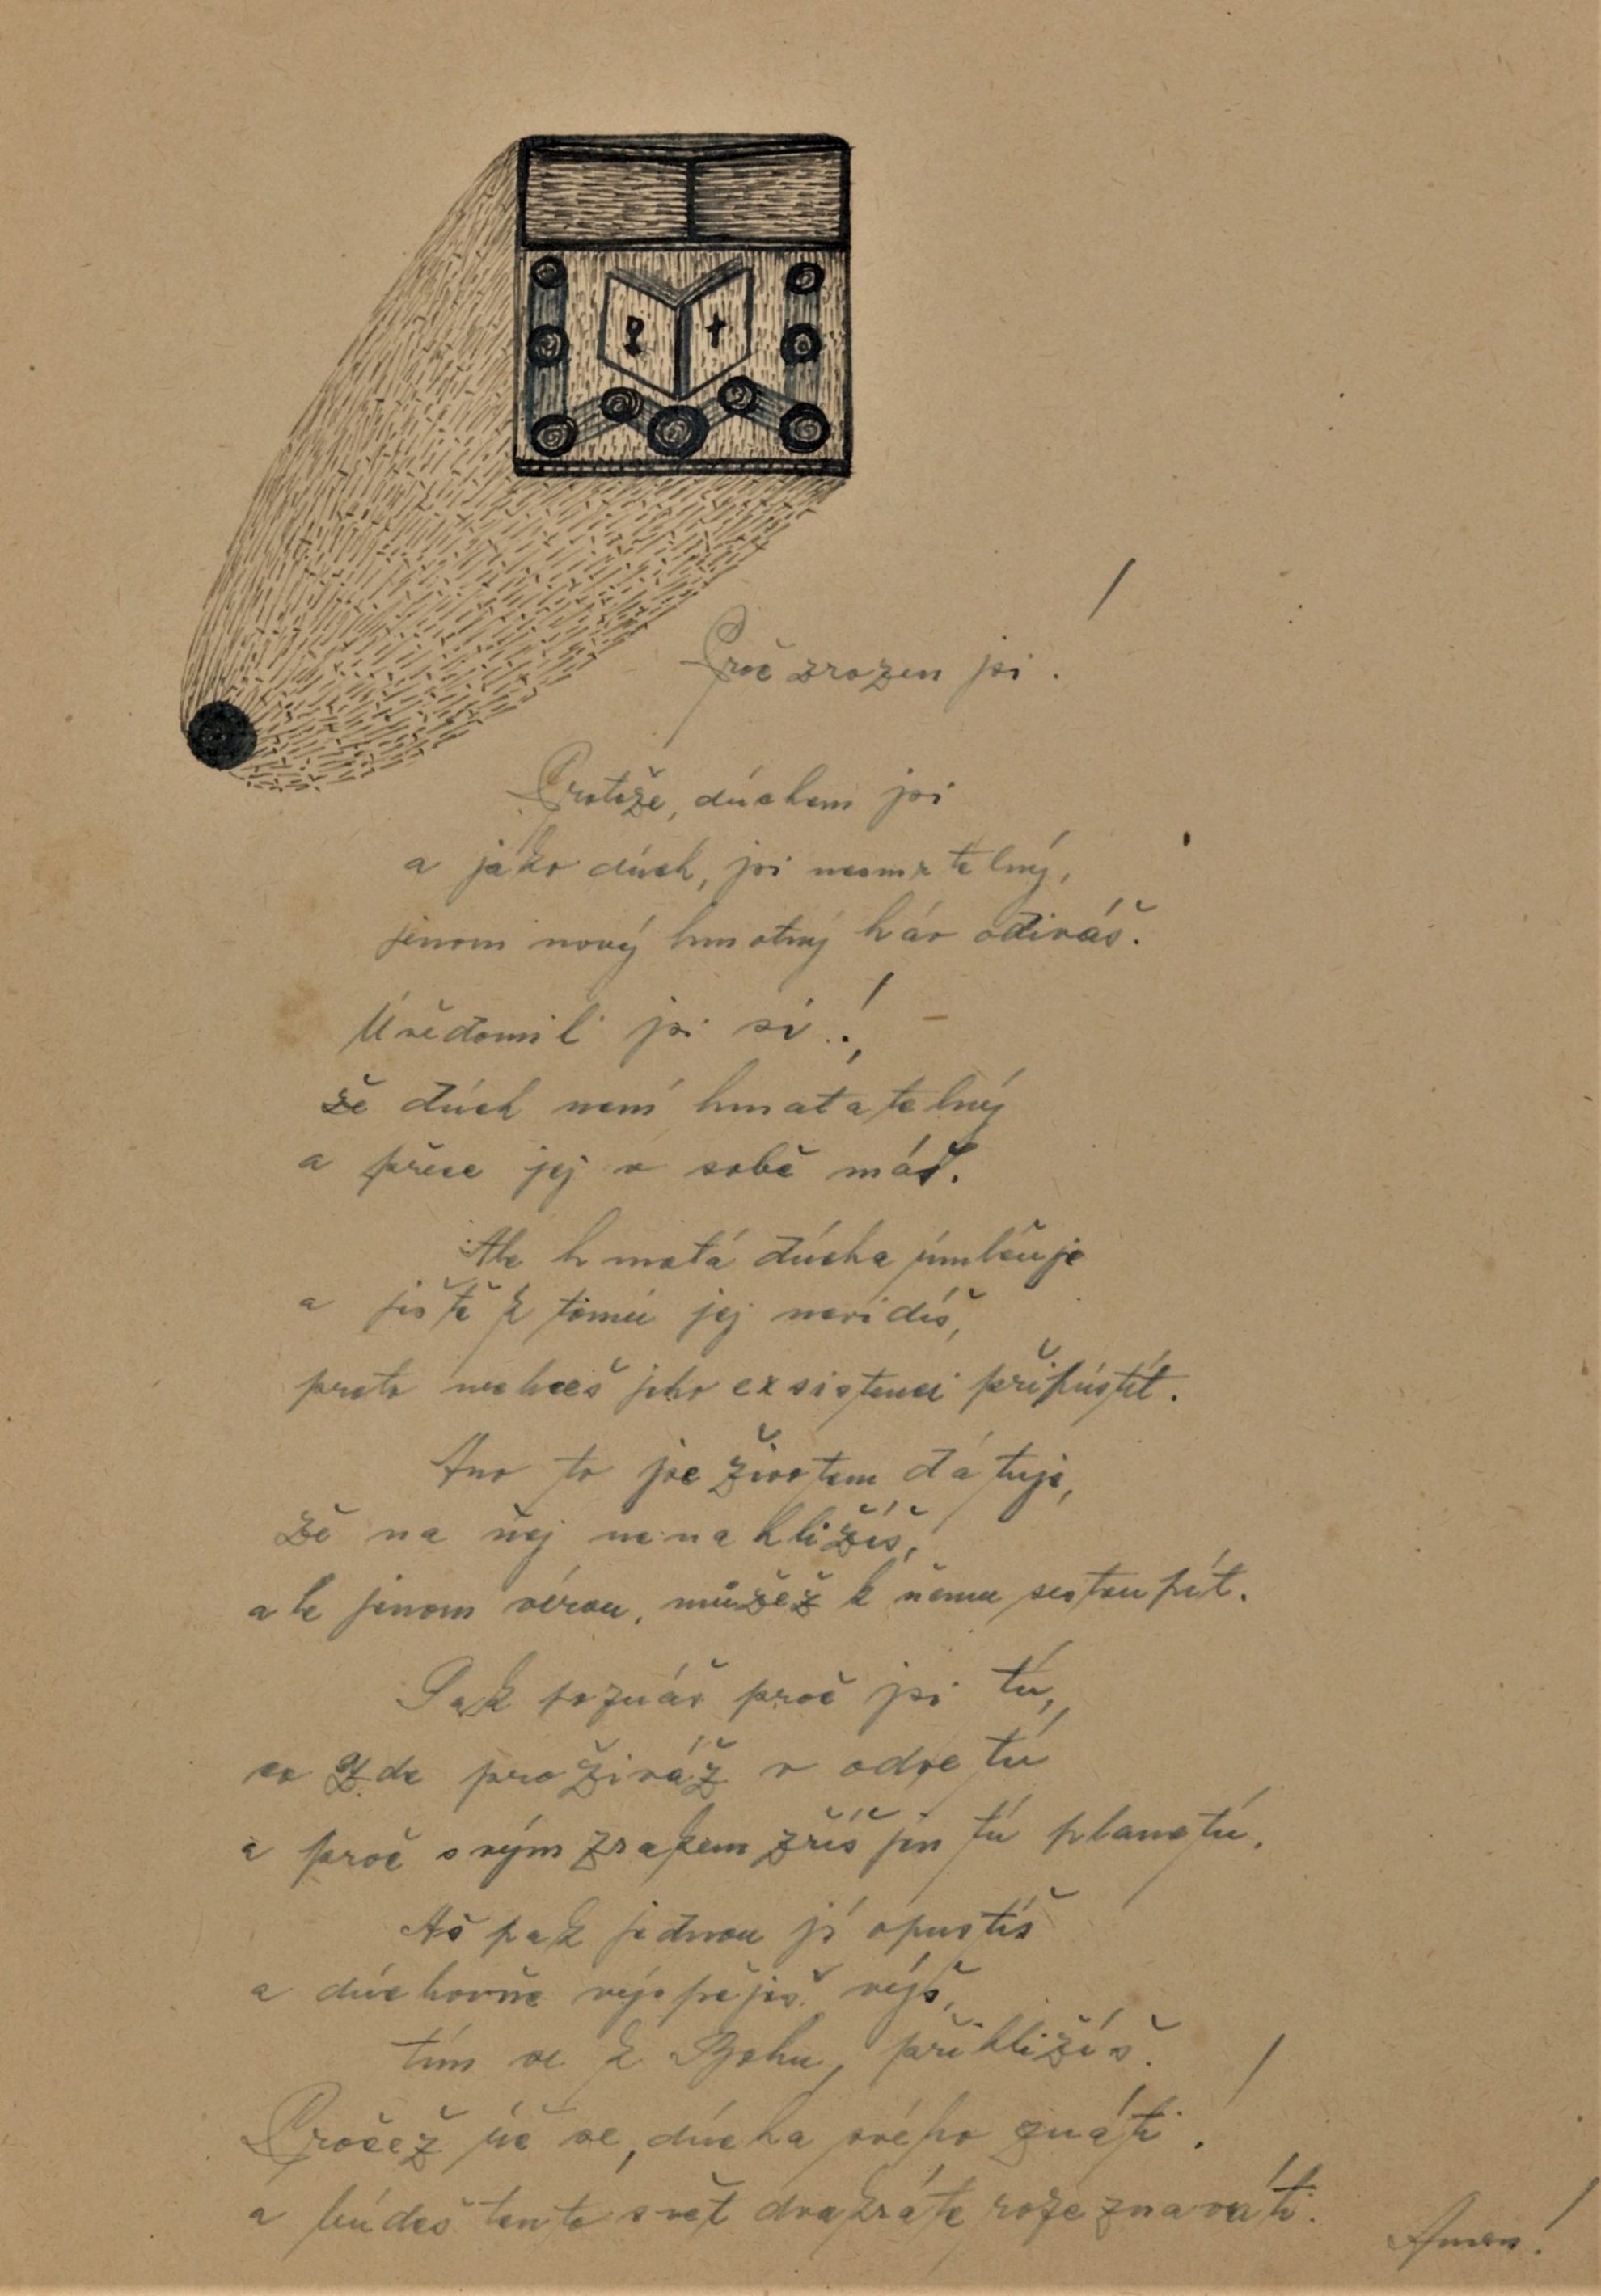 Proč zrozen jsi!
Protože, dúchem jsi
a jáko dúch, jsi nesmrtelný,
jenom nový hmotný háv oďíváš.
Úvědomil jsi si!,
že dúch není hmatatelný
a přece jej v sobě máš.
Ale hmatá dúcha
a ještě k tomú jej nevidíš,
proto nechceš jeho exsistenci připústít.
Ano to jse životem ďátuje,
žě na ňej nenahlížíš,
ale jenom vírou, můžež k ňemu sestoupít.
Pak poznáš proč jsi tú,
co zde prožíváž v odvetú
a proč svým zrakem zříš jen tú planetú.
Aš pak jeďnou jí opustíš
a dúchovňe výspěješ výš,
tím se k Bohu, přihlížíš.
Pročež úč se, dúcha svého znáti!
a búdeš tento svět dvakráte rozeznaváti!
Amen!